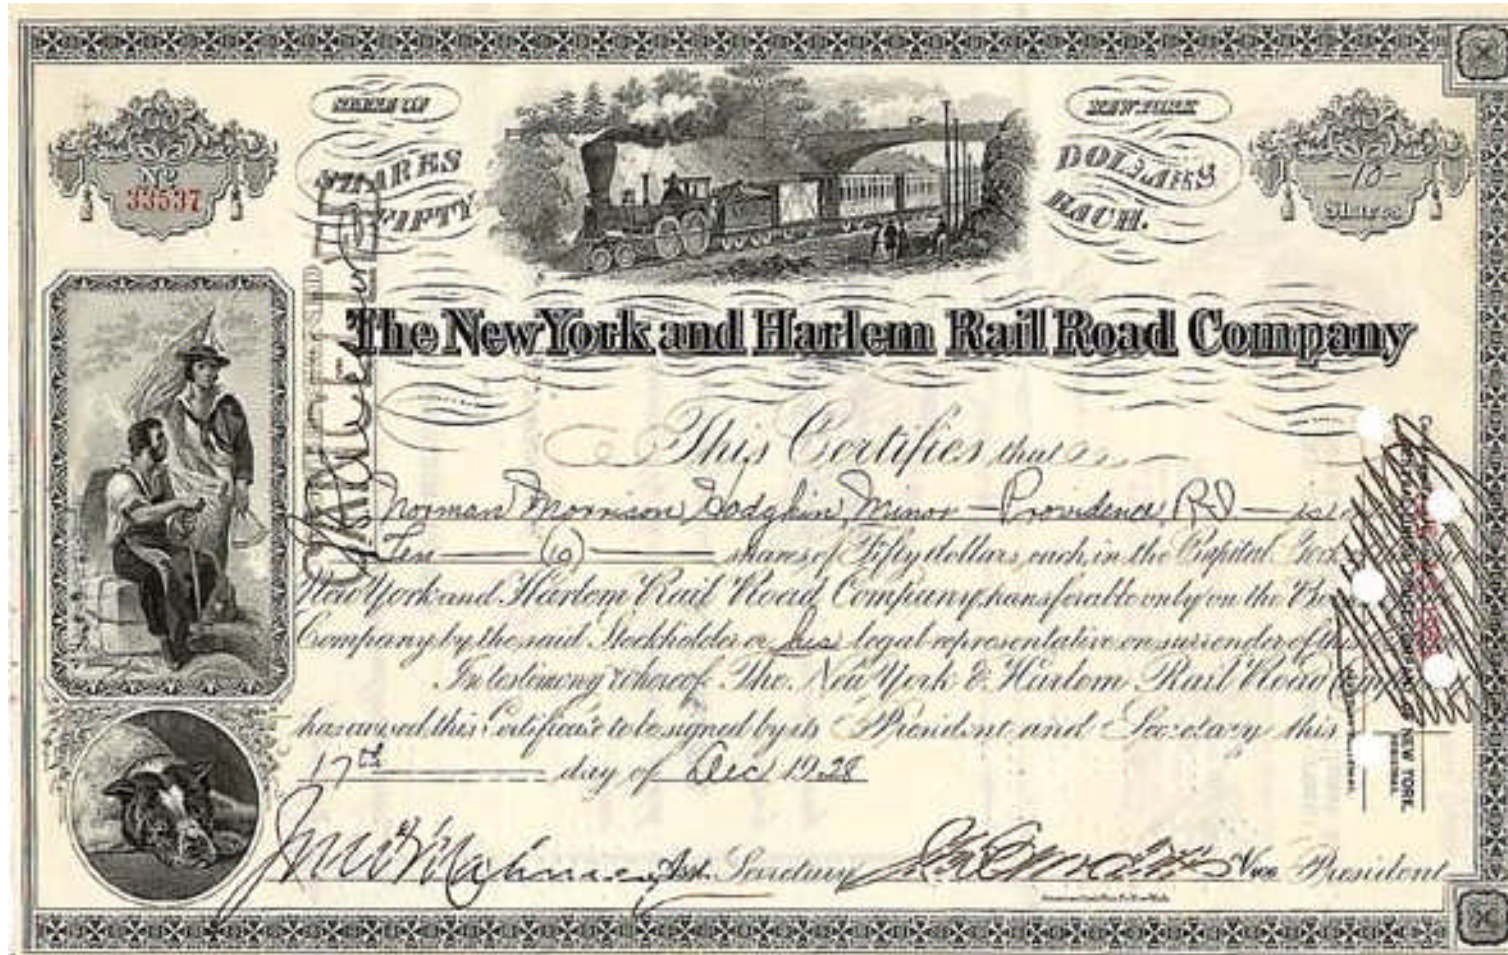 STATE OF
NEW YORK
SHARES
FIFTY
DOLLARS
EACH.
No
33537
-10-
Shares
CANCELLED
The New York and Harlem Rail Road Company
This Certifies that
Norman Morrison Hodgkin, Minor - Providence, R.I. - is
Ten (10) shares of Fifty dollars each, in the Capital Stock
New York and Harlem Rail Road Company, transferable only on the
Company by the said Stockholder or his legal representative on surrender of this
In testimony whereof The New York & Harlem Rail Road
has caused this Certificate to be signed by its President and Secretary this
17th day of Dec 1928
Asst. Secretary
Vice President
NEW YORK,